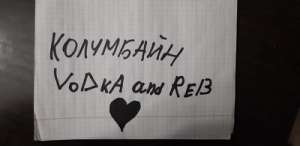 КОЛУМБАЙН
VoDkA and REB